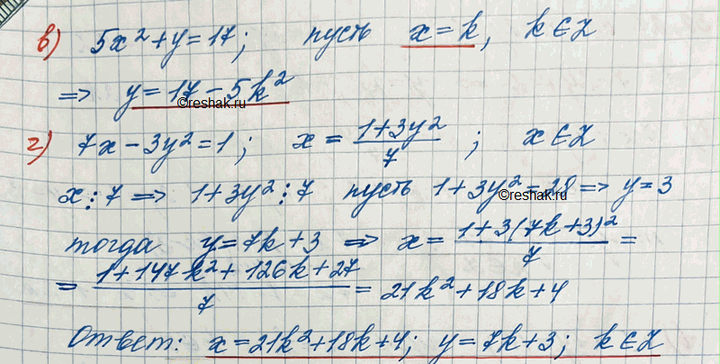 в) 5x² + y = 17; пусть x = k, k ∈ Z
=> y = 17 - 5k²
©reshak.ru
г) 7x - 3y² = 1; x = (1+3y²)/7 ; x ∈ Z
x ⋮ 7 => 1+3y² ⋮ 7 пусть 1+3y² = 28 => y = 3
©reshak.ru
тогда y = 7k+3 => x = (1+3(7k+3)²)/7 =
= (1+147k²+126k+27)/7 = 21k²+18k+4
Ответ: x = 21k²+18k+4; y = 7k+3; k ∈ Z